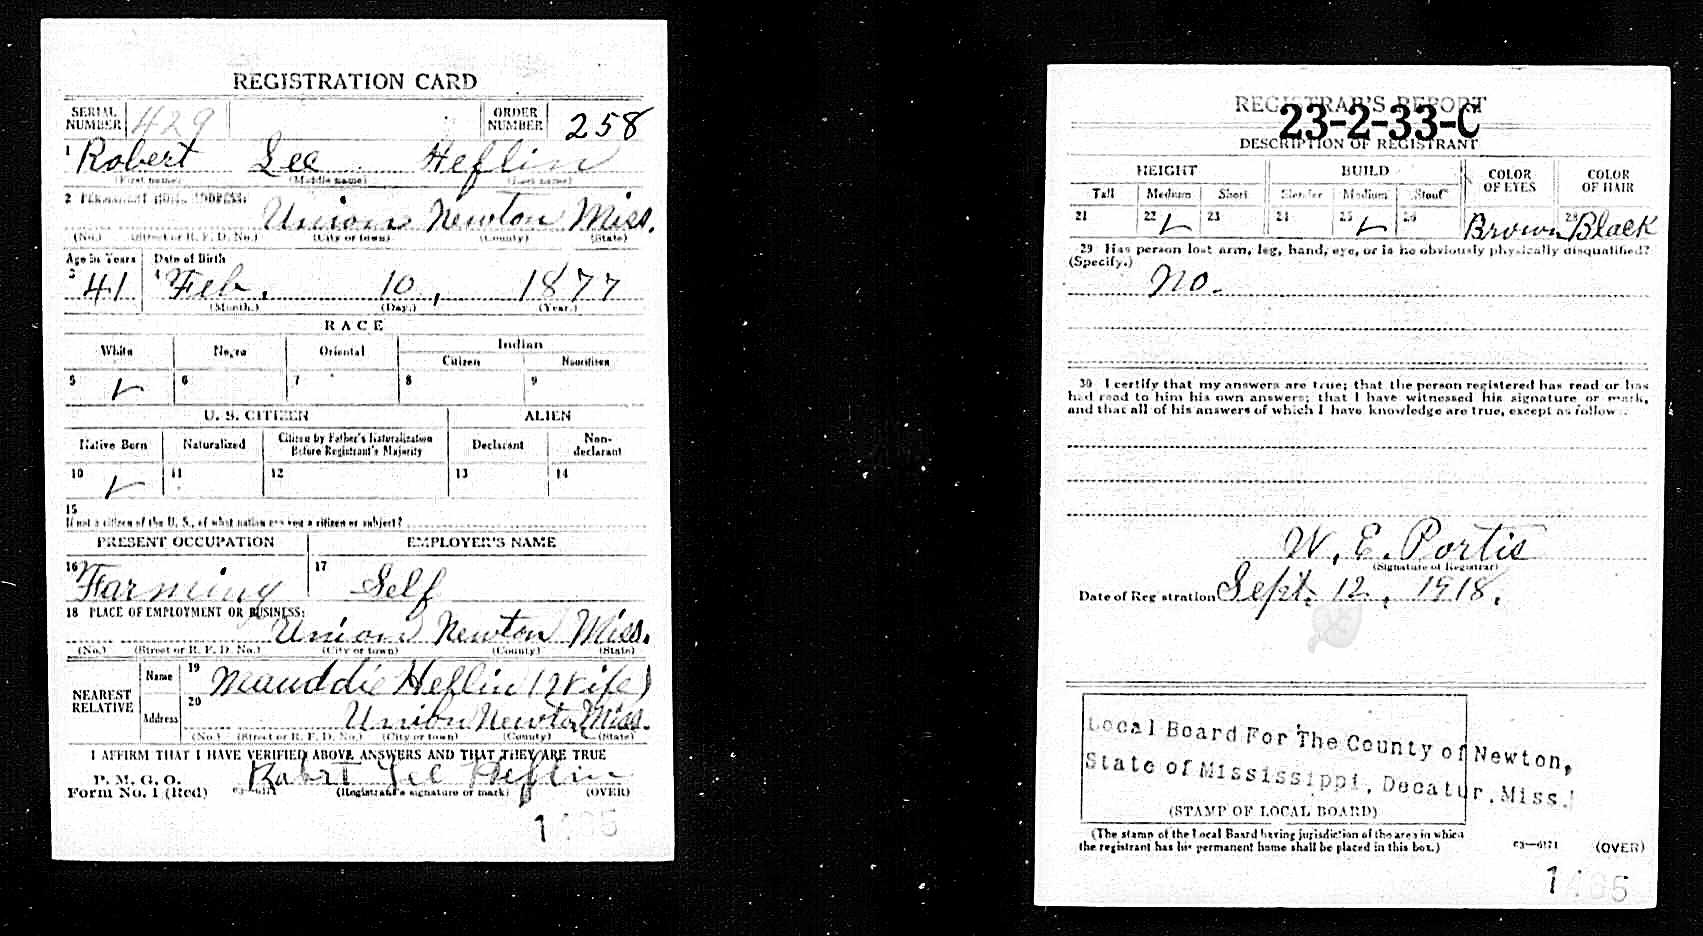 REGISTRATION CARD
SERIAL NUMBER 429 ORDER NUMBER 258
1 Robert Lee Heflin
(First name) (Middle name) (Last name)
2 PERMANENT HOME ADDRESS:
Union Newton Miss.
(No.) (Street or R. F. D. No.) (City or town) (County) (State)
Age in Years Date of Birth
3 41 4 Feb. 10, 1877
(Month.) (Day.) (Year.)
RACE
White Negro Oriental Indian
Citizen Noncitizen
5 ✓ 6 7 8 9
U. S. CITIZEN ALIEN
Native Born Naturalized Citizen by Father's Naturalization Before Registrant's Majority Declarant Non-declarant
10 ✓ 11 12 13 14
15
If not a citizen of the U. S., of what nation are you a citizen or subject?
PRESENT OCCUPATION EMPLOYER'S NAME
16 Farming 17 Self
18 PLACE OF EMPLOYMENT OR BUSINESS:
Union Newton Miss.
(No.) (Street or R. F. D. No.) (City or town) (County) (State)
NEAREST RELATIVE
Name 19 Mauddie Heflin (Wife)
Address 20 Union Newton Miss.
(No.) (Street or R. F. D. No.) (City or town) (County) (State)
I AFFIRM THAT I HAVE VERIFIED ABOVE ANSWERS AND THAT THEY ARE TRUE
P. M. G. O.
Form No. 1 (Red) Robert Lee Heflin
(Registrant's signature or mark) (OVER)
REGISTRAR'S REPORT
23-2-33-C
DESCRIPTION OF REGISTRANT
HEIGHT BUILD COLOR OF EYES COLOR OF HAIR
Tall Medium Short Slender Medium Stout
21 22 ✓ 23 24 25 ✓ 26 Brown 28 Black
29 Has person lost arm, leg, hand, eye, or is he obviously physically disqualified?
(Specify.)
No.
30 I certify that my answers are true; that the person registered has read or has
had read to him his own answers; that I have witnessed his signature or mark,
and that all of his answers of which I have knowledge are true, except as follows:
W. E. Portis
(Signature of Registrar)
Date of Registration Sept. 12, 1918.
Local Board For The County of Newton,
State of Mississippi, Decatur, Miss.
(STAMP OF LOCAL BOARD)
(The stamp of the Local Board having jurisdiction of the area in which
the registrant has his permanent home shall be placed in this box.)
03—6171 (OVER)